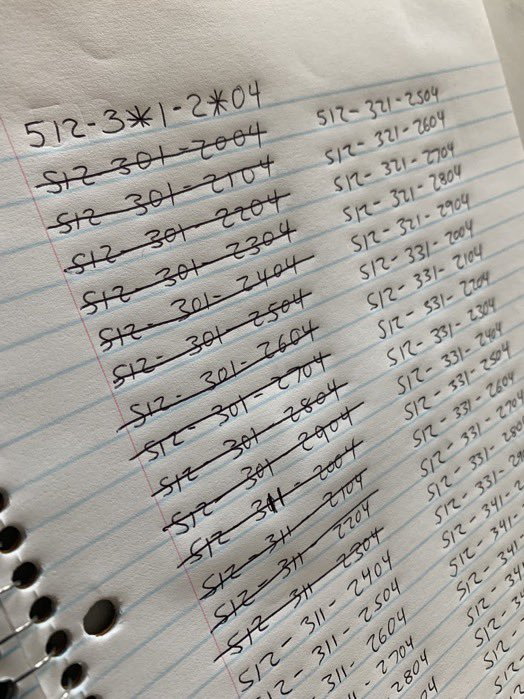 512-3*1-2*04
512-301-2004
512-301-2104
512-301-2204
512-301-2304
512-301-2404
512-301-2504
512-301-2604
512-301-2704
512-301-2804
512-301-2904
512-311-2004
512-311-2104
512-311-2204
512-311-2304
512-311-2404
512-311-2504
311-2604
2704
2804
512-321-2504
512-321-2604
512-321-2704
512-321-2804
512-321-2904
512-331-2004
512-331-2104
512-331-2204
512-331-2304
512-331-2404
512-331-2504
512-331-2604
512-331-2704
512-331-280
512-331-29
512-341-2
512-341-
512-341
512-34
512-3